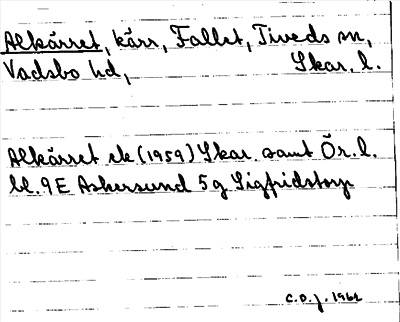 Alkärret, kärr, Fallet, Tiveds sn,
Vadsbo hd, Skar. l.
Alkärret ek (1959) Skar. samt Ör. l.
bl. 9E Askersund 5g Sigfridstorp
C.O.J. 1962